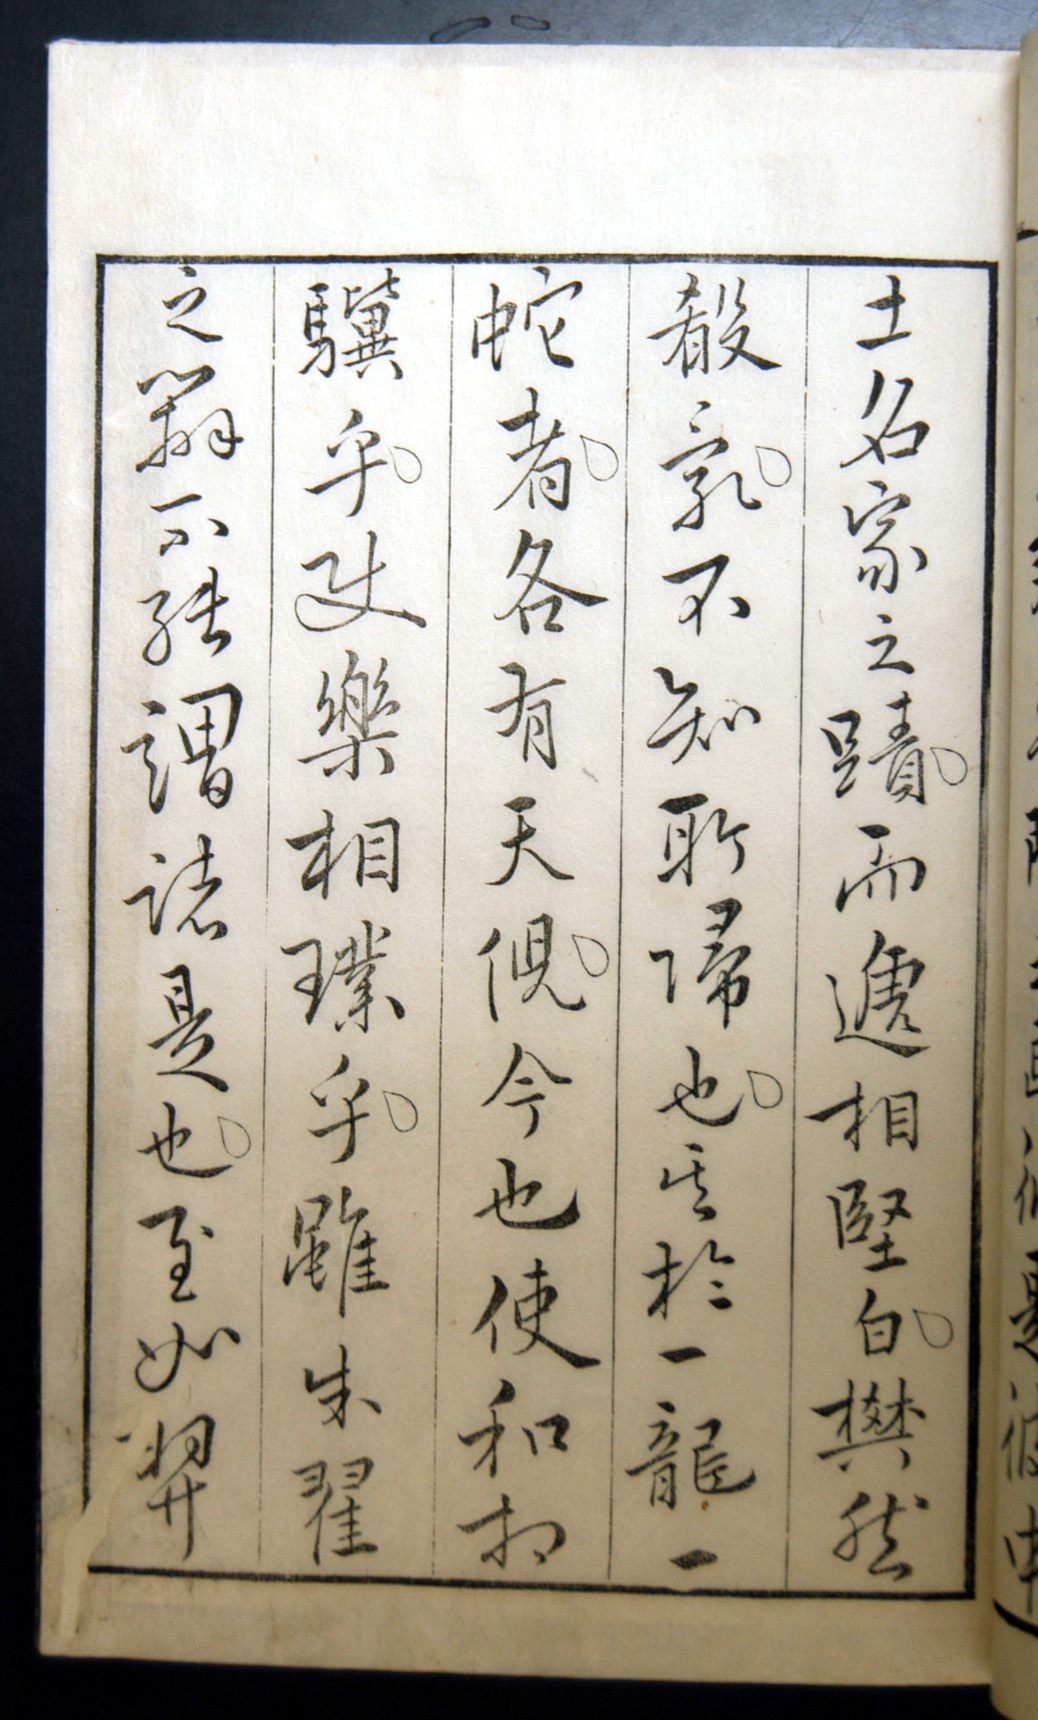 士名家之蹟而遞相堅白樊然
殽乱不知所歸也其於一龍一
蛇者各有天倪今也使和扣
驥乎使樂相璞乎雖朱翟
之辯不能謂諸是也至如羿